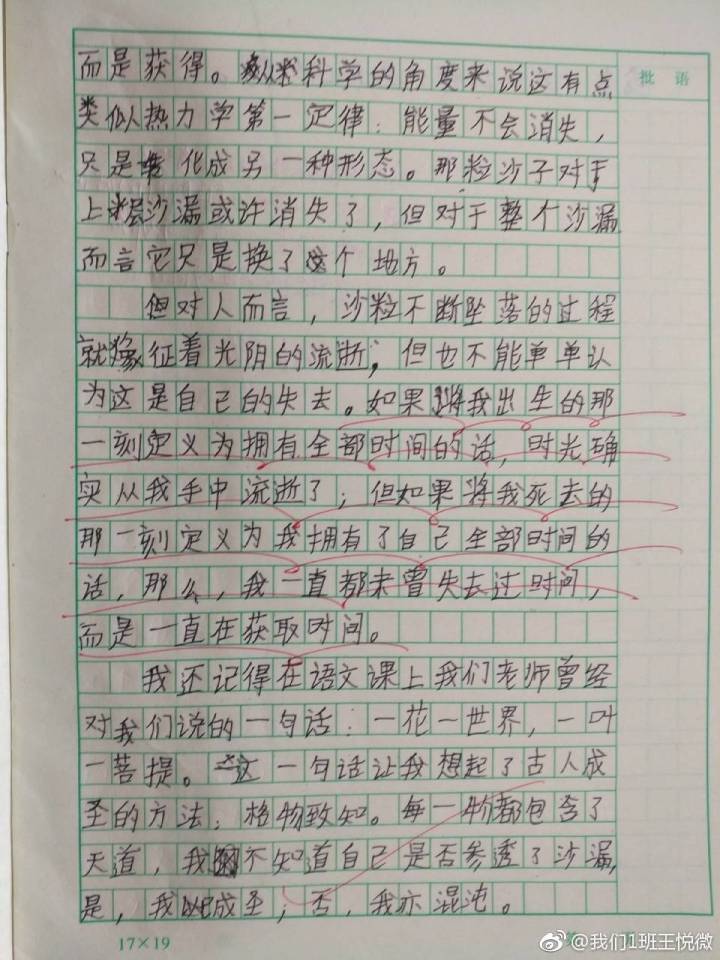 批语
而是获得。从科学的角度来说这有点
类似热力学第一定律：能量不会消失，
只是转化成另一种形态。那粒沙子对于
上层沙漏或许消失了，但对于整个沙漏
而言它只是换了个地方。
但对人而言，沙粒不断坠落的过程
就像征着光阴的流逝，但也不能单单认
为这是自己的失去。如果将我出生的那
一刻定义为拥有全部时间的话，时光确
实从我手中流逝了；但如果将我死去的
那一刻定义为我拥有了自己全部时间的
话，那么，我一直都未曾失去过时间，
而是一直在获取时间。
我还记得在语文课上我们老师曾经
对我们说的一句话：一花一世界，一叶
一菩提。这一句话让我想起了古人成
圣的方法：格物致知。每一物都包含了
天道，我不知道自己是否参透了沙漏，
是，我成圣；否，我亦混沌。
17×19
@我们1班王悦微